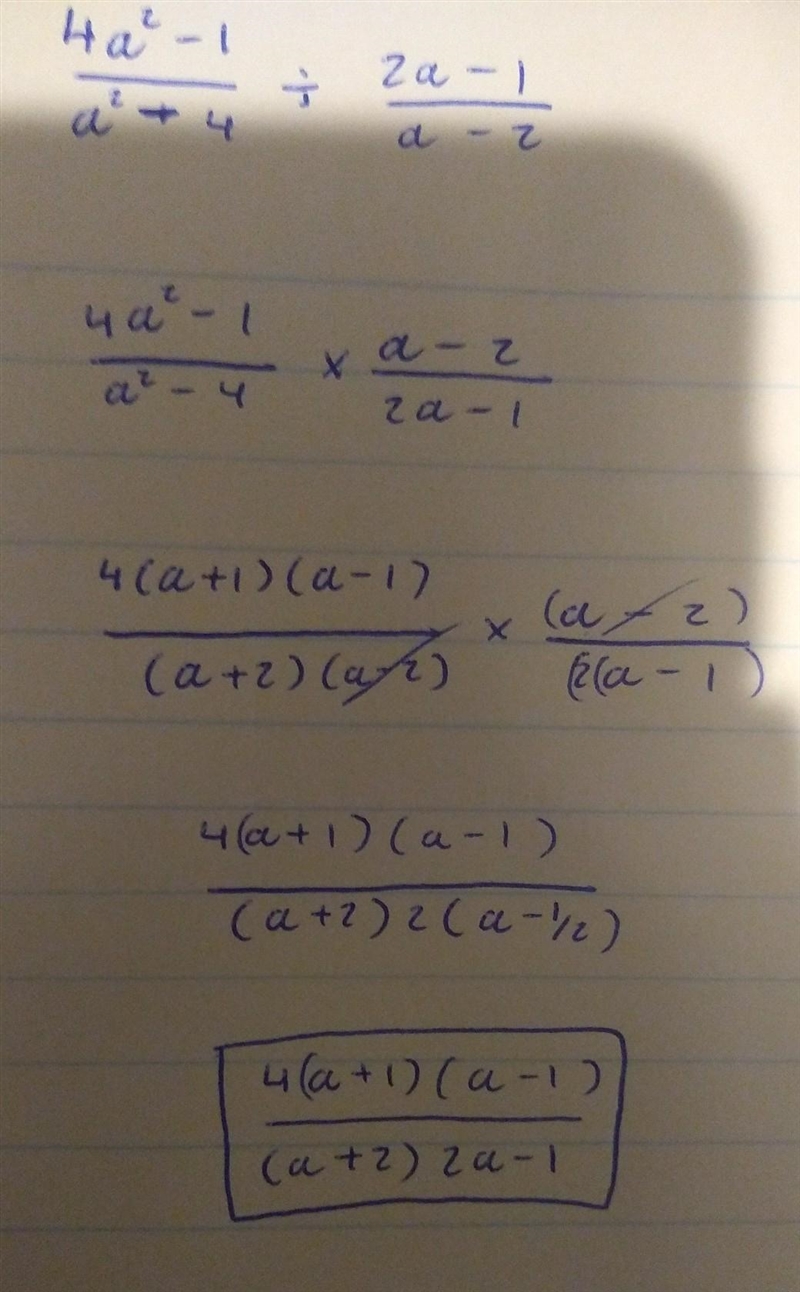 4a² - 1 / a² - 4 ÷ 2a - 1 / a - 2
4a² - 1 / a² - 4 × a - 2 / 2a - 1
4(a+1)(a-1) / (a+2)(a-2) × (a - 2) / 2(a - 1)
4(a+1)(a-1) / (a+2)2(a-1/2)
4(a+1)(a-1) / (a+2)2a-1